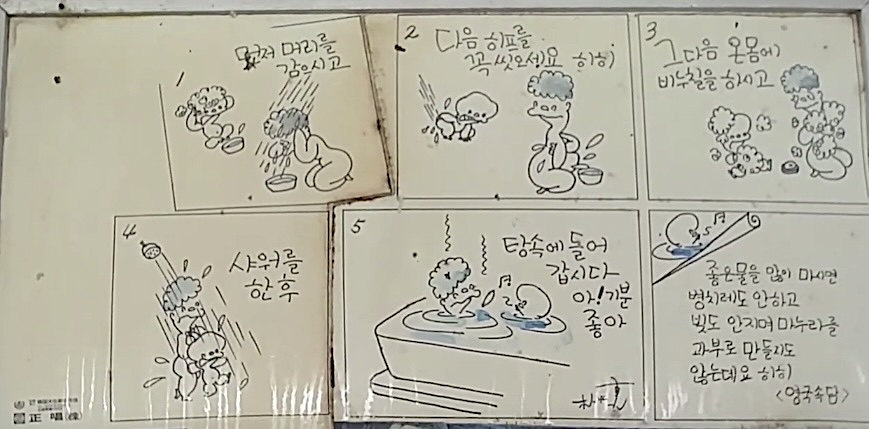 1
먼저 머리를
감으시고
2
다음 히프를
꼭 씻으세요 히히
3
그다음 온몸에
비누칠을 하시고
4
샤워를
한 후
5
탕속에 들어
갑시다
아! 기분
좋아
좋은물을 많이 마시면
병치레도 안하고
빚도 안지며 마누라를
과부로 만들지도
않는데요 히히
<영국속담>
正唱